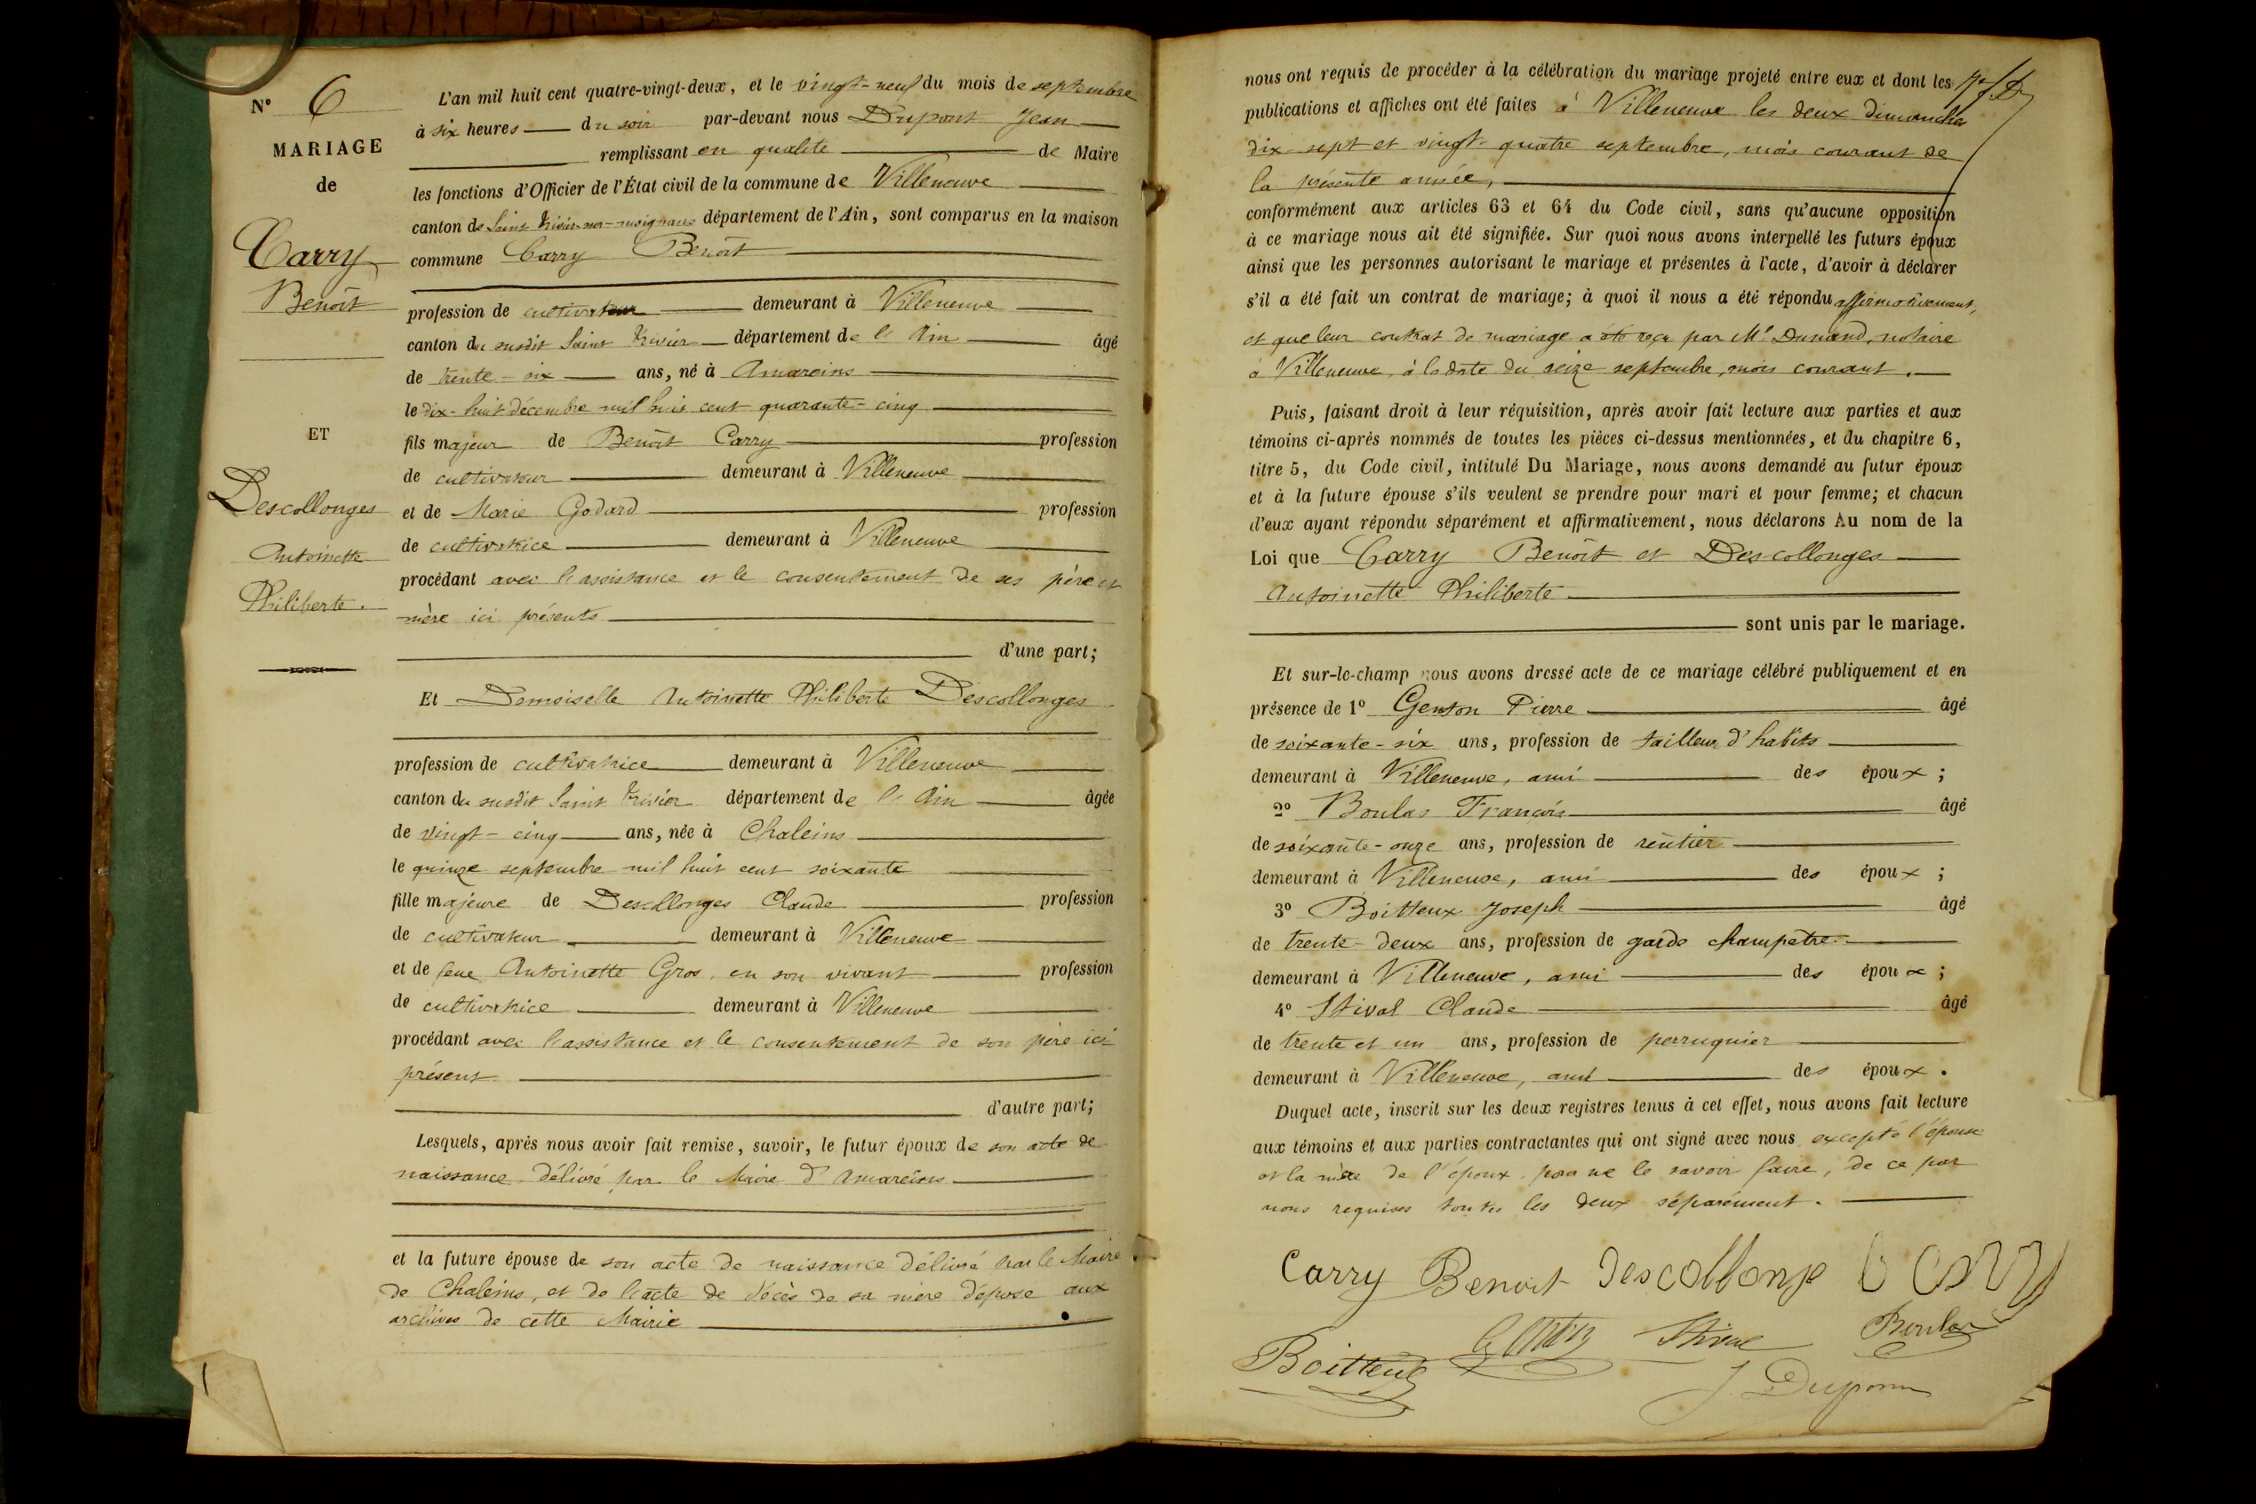 N° 6
MARIAGE
de
Carry
Benoît
ET
Descollonges
Antoinette
Philiberte.
L'an mil huit cent quatre-vingt-deux, et le vingt-neuf du mois de septembre
à six heures du soir par-devant nous Dupont Jean
remplissant en qualité de Maire
les fonctions d'Officier de l'État civil de la commune de Villeneuve
canton de Saint Trivier-sur-moignans département de l'Ain, sont comparus en la maison
commune Carry Benoît
profession de cultivateur demeurant à Villeneuve
canton du susdit Saint Trivier département de l'Ain âgé
de trente-six ans, né à Amareins
le dix-huit décembre mil huit cent quarante-cinq
fils majeur de Benoît Carry profession
de cultivateur demeurant à Villeneuve
et de Marie Godard profession
de cultivatrice demeurant à Villeneuve
procédant avec l'assistance et le consentement de ses père et
mère ici présents
d'une part;
Et Demoiselle Antoinette Philiberte Descollonges
profession de cultivatrice demeurant à Villeneuve
canton du susdit Saint Trivier département de l'Ain âgée
de vingt-cinq ans, née à Chaleins
le quinze septembre mil huit cent soixante
fille majeure de Descollonges Claude profession
de cultivateur demeurant à Villeneuve
et de feue Antoinette Gros, en son vivant profession
de cultivatrice demeurant à Villeneuve
procédant avec l'assistance et le consentement de son père ici
présent
d'autre part;
Lesquels, après nous avoir fait remise, savoir, le futur époux de son acte de
naissance délivré par le Maire d'Amareins
et la future épouse de son acte de naissance délivré par le Maire
de Chaleins, et de l'acte de décès de sa mère déposé aux
archives de cette Mairie
nous ont requis de procéder à la célébration du mariage projeté entre eux et dont les
publications et affiches ont été faites à Villeneuve les deux dimanches
dix-sept et vingt-quatre septembre, mois courant de
la présente année,
conformément aux articles 63 et 64 du Code civil, sans qu'aucune opposition
à ce mariage nous ait été signifiée. Sur quoi nous avons interpellé les futurs époux
ainsi que les personnes autorisant le mariage et présentes à l'acte, d'avoir à déclarer
s'il a été fait un contrat de mariage; à quoi il nous a été répondu affirmativement,
et que leur contrat de mariage a été reçu par Me Dunand, notaire
à Villeneuve, à la date du seize septembre, mois courant.
Puis, faisant droit à leur réquisition, après avoir fait lecture aux parties et aux
témoins ci-après nommés de toutes les pièces ci-dessus mentionnées, et du chapitre 6,
titre 5, du Code civil, intitulé Du Mariage, nous avons demandé au futur époux
et à la future épouse s'ils veulent se prendre pour mari et pour femme; et chacun
d'eux ayant répondu séparément et affirmativement, nous déclarons Au nom de la
Loi que Carry Benoît et Descollonges
Antoinette Philiberte
sont unis par le mariage.
Et sur-le-champ nous avons dressé acte de ce mariage célébré publiquement et en
présence de 1° Genton Pierre âgé
de soixante-six ans, profession de tailleur d'habits
demeurant à Villeneuve, ami des époux ;
2° Boulas François âgé
de soixante-onze ans, profession de rentier
demeurant à Villeneuve, ami des époux ;
3° Boitteux Joseph âgé
de trente-deux ans, profession de garde champêtre
demeurant à Villeneuve, ami des époux ;
4° Stival Claude âgé
de trente et un ans, profession de perruquier
demeurant à Villeneuve, ami des époux .
Duquel acte, inscrit sur les deux registres tenus à cet effet, nous avons fait lecture
aux témoins et aux parties contractantes qui ont signé avec nous excepté l'épouse
et la mère de l'époux pour ne le savoir faire, de ce par
nous requises toutes les deux séparément.
Carry Benoit Descollonge
Boitteux Stival Boulas
J. Dupont